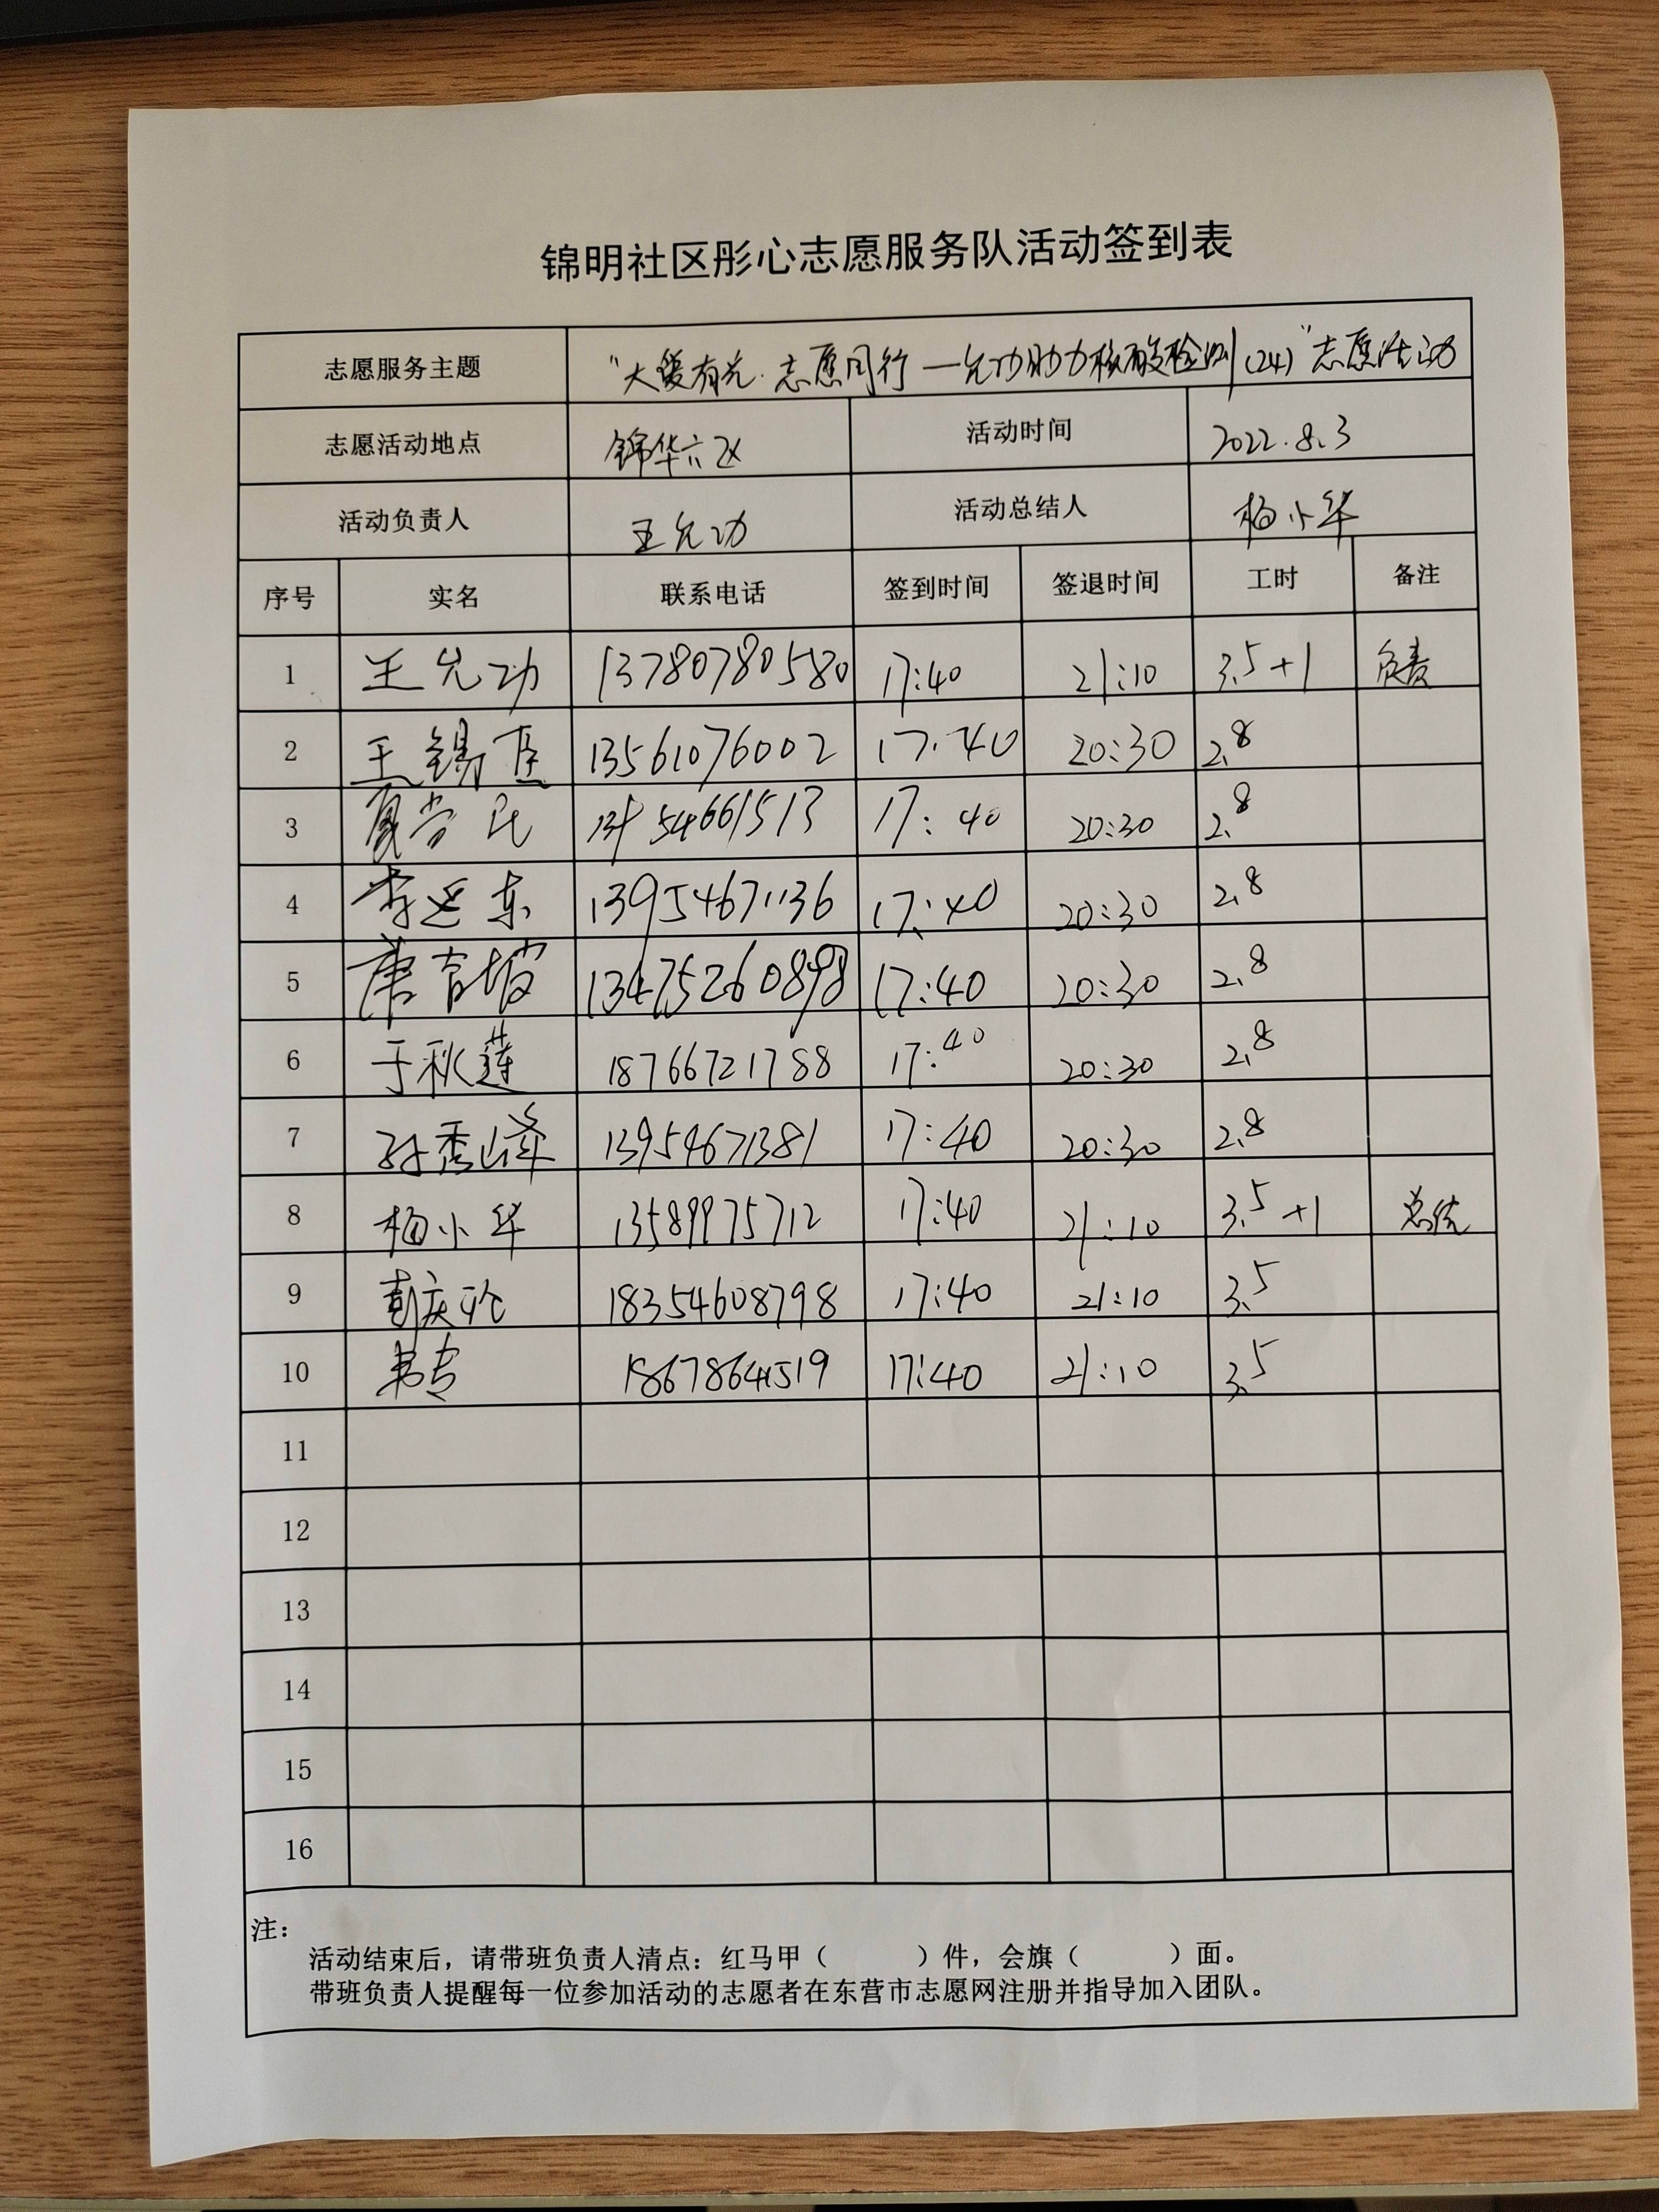 锦明社区彤心志愿服务队活动签到表
志愿服务主题 "大爱有光.志愿同行—允功助力核酸检测(24)"志愿活动
志愿活动地点 锦华六区 活动时间 2022.8.3
活动负责人 王允功 活动总结人 杨小华
序号 实名 联系电话 签到时间 签退时间 工时 备注
1 王允功 13780780580 17:40 21:10 3.5+1 负责
2 王锡 13561076002 17:40 20:30 2.8
3 夏尚民 54661513 17:40 20:30 2.8
4 李延东 13954671136 17:40 20:30 2.8
5 唐育坡 13475260898 17:40 20:30 2.8
6 于秋莲 18766721788 17:40 20:30 2.8
7 孙秀峰 13954671381 17:40 20:30 2.8
8 杨小华 13589975712 17:40 21:10 3.5+1 总结
9 彭庆玲 18354608798 17:40 21:10 3.5
10 17:40 21:10 3.5
11
12
13
14
15
16
注：
活动结束后，请带班负责人清点：红马甲（ ）件，会旗（ ）面。
带班负责人提醒每一位参加活动的志愿者在东营市志愿网注册并指导加入团队。